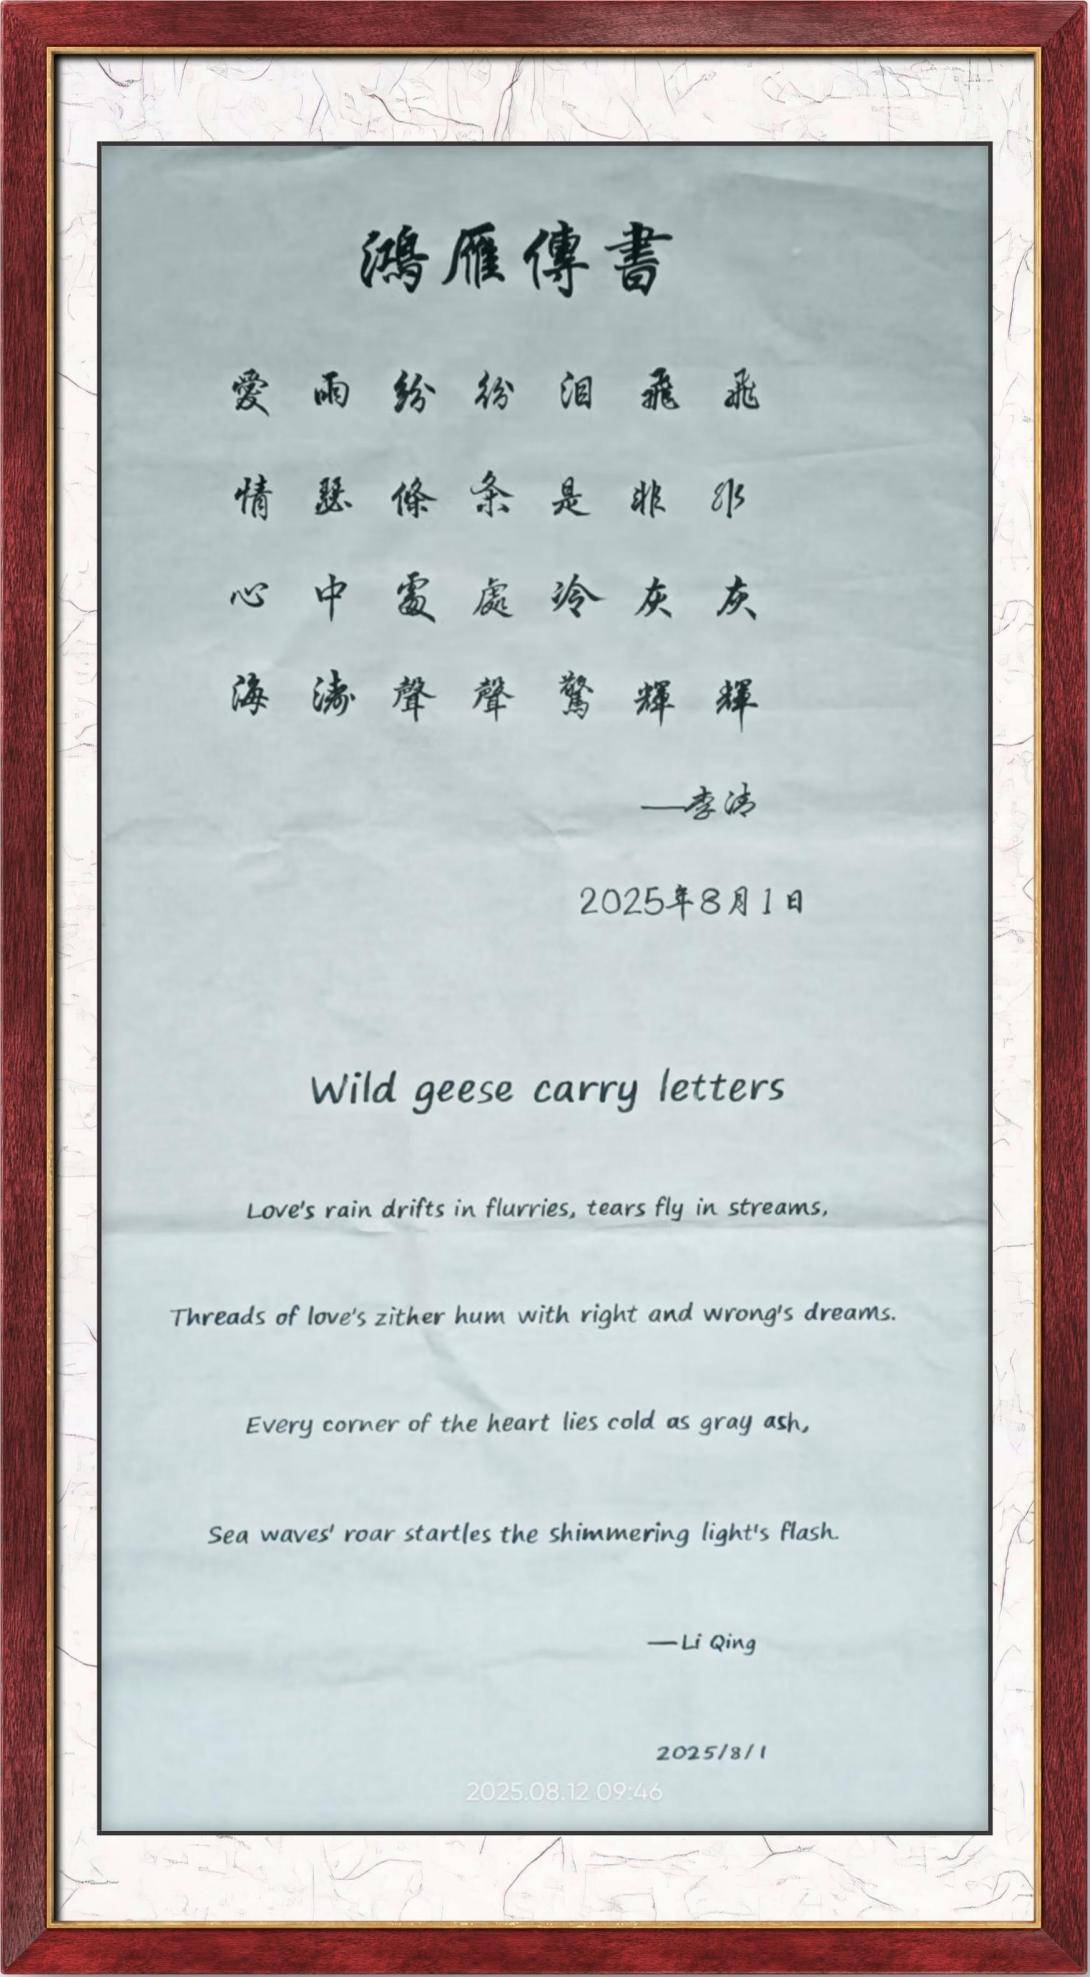 鴻雁傳書
愛雨紛紛泪飛飛
情瑟條条是非
心中處處冷灰灰
海濤聲聲驚輝輝
—李清
2025年8月1日
Wild geese carry letters
Love's rain drifts in flurries, tears fly in streams,
Threads of love's zither hum with right and wrong's dreams.
Every corner of the heart lies cold as gray ash,
Sea waves' roar startles the shimmering light's flash.
—Li Qing
2025/8/1
2025.08.12 09:46